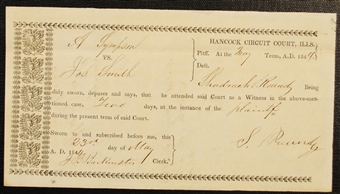 HANCOCK CIRCUIT COURT, ILLS.
A Sympson
Pltff. At the May Term, A.D. 184
VS.
Jos Smith
Deft.
being
duly sworn, deposes and says, that he attended said Court as a Witness in the above-men-
tioned case, Two days, at the instance of the plaintff
during the present term of said Court.
Sworn to and subscribed before me, this
22nd day of May
A. D. 184
Clerk.
S.